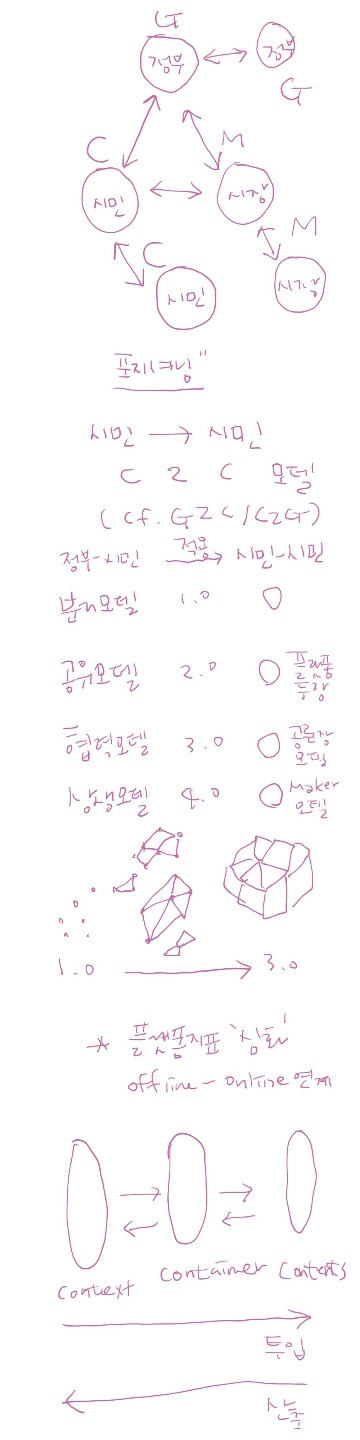 G
정부 정부
G
C M
시민 시장
C M
시민 시장
포지셔닝"
시민 → 시민
C 2 C 모델
(cf. G2C/C2G)
정부-시민 적용 시민-시민
분리모델 1.0 ○
공유모델 2.0 ○ 플랫폼 등장
협력모델 3.0 ○ 공론장 모델
상생모델 4.0 ○ Maker 모델
1.0 → 3.0
* 플랫폼지표 '심화'
offline - online 연계
Context Container Contents
투입
산출